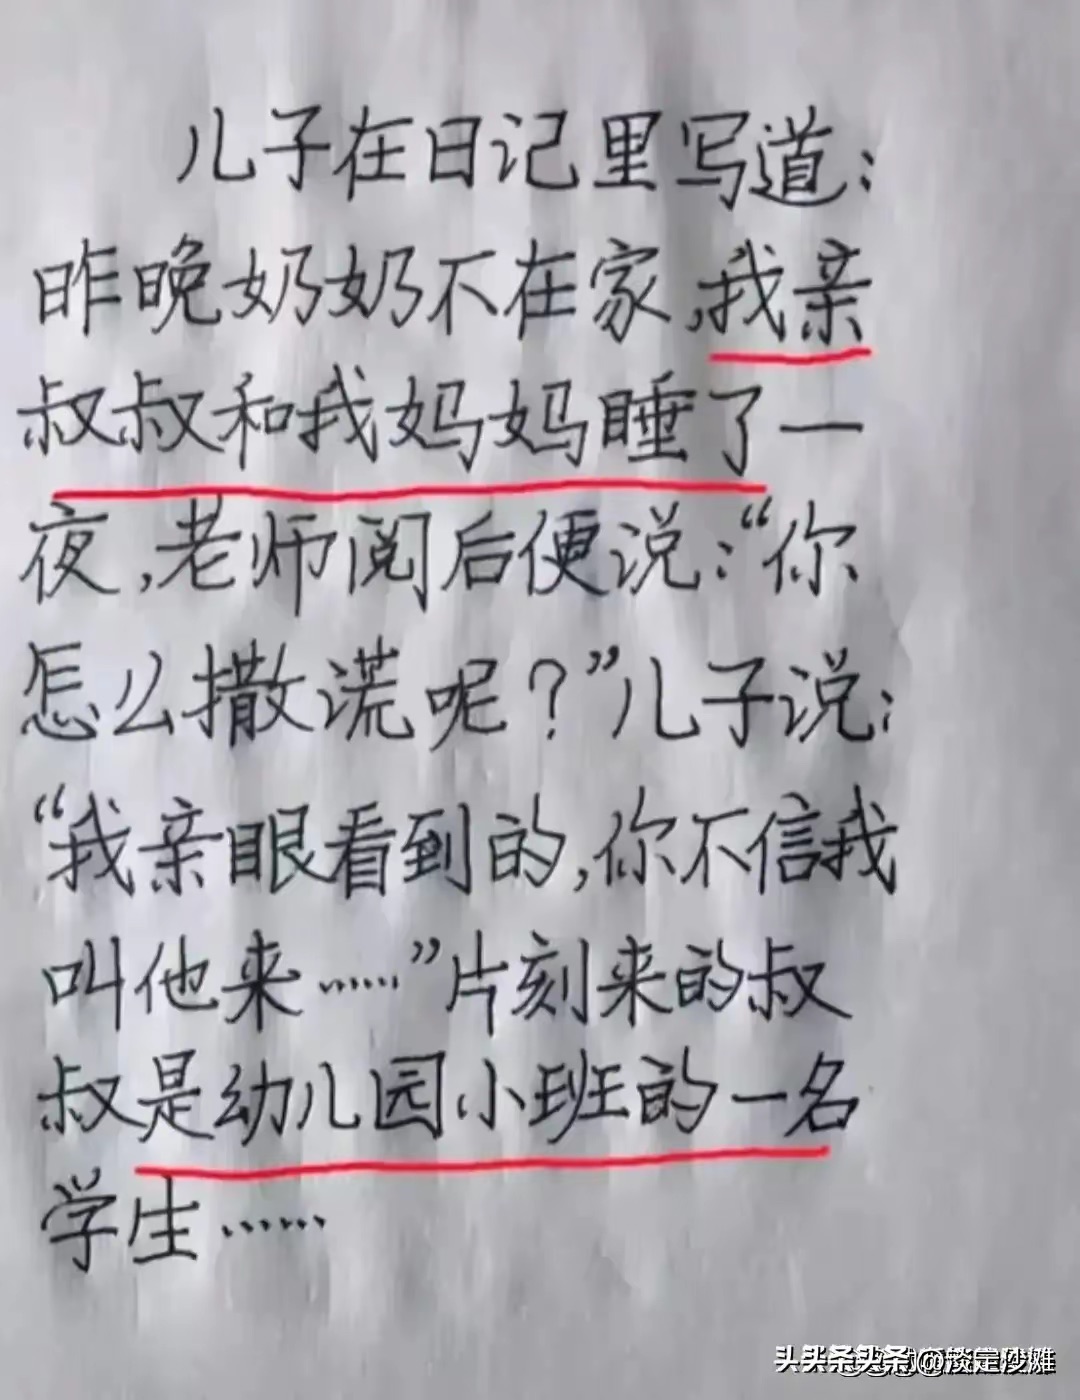 儿子在日记里写道:
昨晚奶奶不在家,我亲
叔叔和我妈妈睡了一
夜,老师阅后便说:“你
怎么撒谎呢?”儿子说:
“我亲眼看到的,你不信我
叫他来……”片刻来的叔
叔是幼儿园小班的一名
学生……
头条 @淡定沙滩